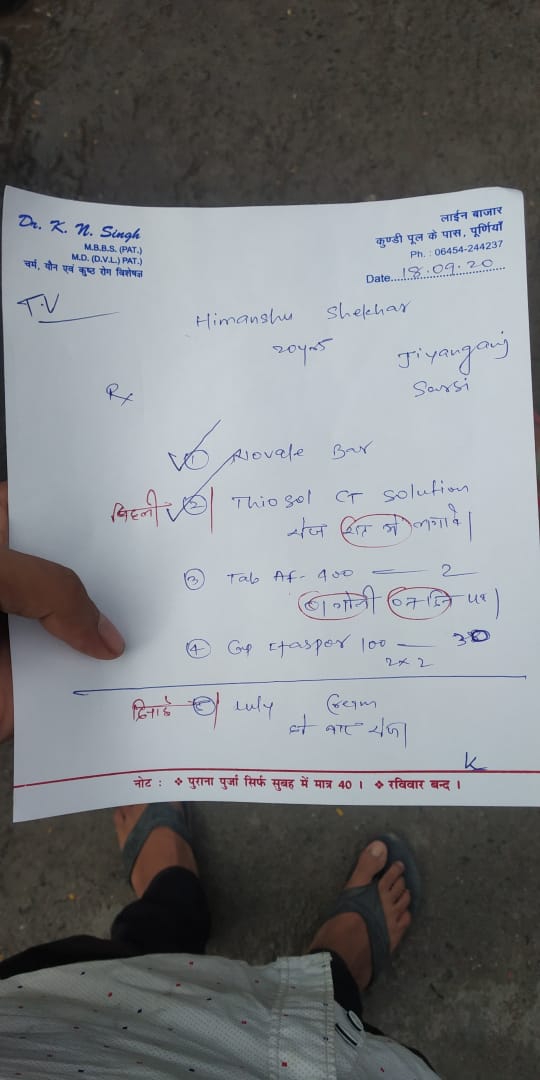 Dr. K. N. Singh
M.B.B.S. (PAT.)
M.D. (D.V.L.) PAT.)
चर्म, यौन एवं कुष्ठ रोग विशेषज्ञ
लाईन बाजार
कुण्डी पूल के पास, पूर्णियाँ
Ph. : 06454-244237
Date 18.09.20
T.V
Himanshu Shekhar
20yrs
Jiyanganj
Sarsi
Rx
1 Novale Bar
2 Thiosol CT Solution
रोज रात में लगावें।
3 Tab Af-400 — 2
गोली दिन पर।
4 Cap Itaspor 100 — 30
2x2
Luly Cream
दो बार रोज।
K
नोट : ❖ पुराना पुर्जा सिर्फ सुबह में मात्र 40 । ❖ रविवार बन्द ।